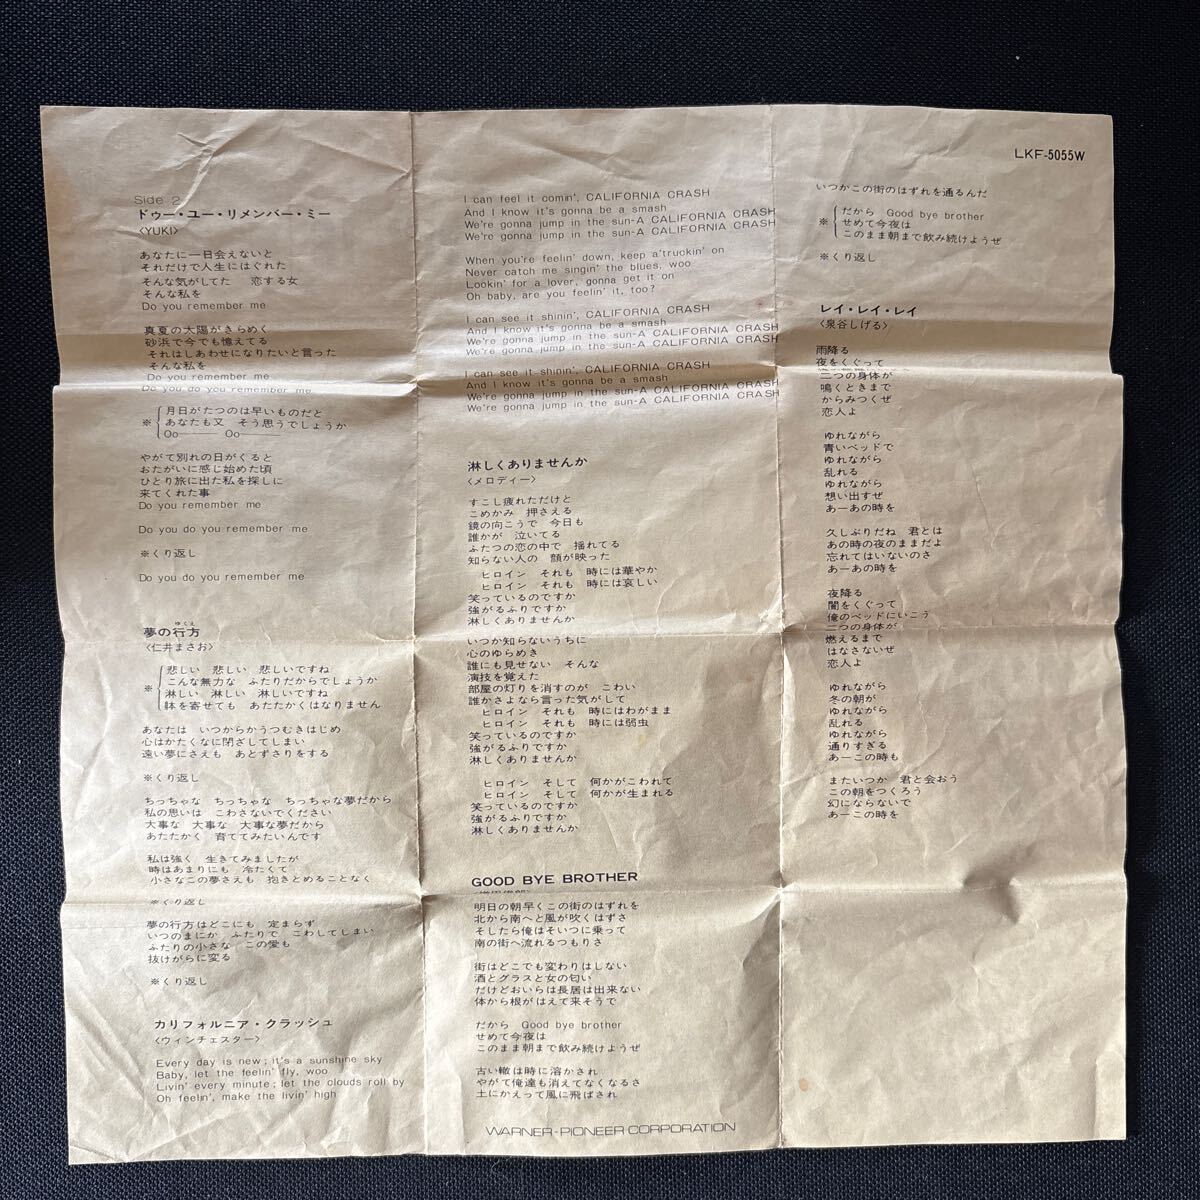 LKF-5055W
Side 2
ドゥー・ユー・リメンバー・ミー
〈YUKI〉
あなたに一日会えないと
それだけで人生にはぐれた
そんな気がしてた 恋する女
そんな私を
Do you remember me
真夏の太陽がきらめく
砂浜で今でも憶えてる
それはしあわせになりたいと言った
そんな私を
Do you remember me
Do you do you remember me
※ 月日がたつのは早いものだと
あなたも又 そう思うでしょうか
Oo—— Oo——
やがて別れの日がくると
おたがいに感じ始めた頃
ひとり旅に出た私を探しに
来てくれた事
Do you remember me
Do you do you remember me
※くり返し
Do you do you remember me
夢の行方
ゆくえ
〈仁井まさお〉
※ 悲しい 悲しい 悲しいですね
こんな無力な ふたりだからでしょうか
淋しい 淋しい 淋しいですね
体を寄せても あたたかくはなりません
あなたは いつからかうつむきはじめ
心はかたくなに閉ざしてしまい
遠い夢にさえも あとずさりをする
※くり返し
ちっちゃな ちっちゃな ちっちゃな夢だから
私の思いは こわさないでください
大事な 大事な 大事な夢だから
あたたかく 育ててみたいんです
私は強く 生きてみましたが
時はあまりにも 冷たくて
小さなこの夢さえも 抱きとめることなく
※くり返し
夢の行方はどこにも 定まらず
いつのまにか ふたりで こわしてしまい
ふたりの小さな この愛も
抜けがらに変る
※くり返し
カリフォルニア・クラッシュ
〈ウィンチェスター〉
Every day is new; it's a sunshine sky
Baby, let the feelin' fly, woo
Livin' every minute; let the clouds roll by
Oh feelin', make the livin' high
I can feel it comin', CALIFORNIA CRASH
And I know it's gonna be a smash
We're gonna jump in the sun-A CALIFORNIA CRASH
We're gonna jump in the sun-A CALIFORNIA CRASH
When you're feelin' down, keep a'truckin' on
Never catch me singin' the blues, woo
Lookin' for a lover, gonna get it on
Oh baby, are you feelin' it, too?
I can see it shinin', CALIFORNIA CRASH
And I know it's gonna be a smash
We're gonna jump in the sun-A CALIFORNIA CRASH
We're gonna jump in the sun-A CALIFORNIA CRASH
I can see it shinin', CALIFORNIA CRASH
And I know it's gonna be a smash
We're gonna jump in the sun-A CALIFORNIA CRASH
We're gonna jump in the sun-A CALIFORNIA CRASH
淋しくありませんか
〈メロディー〉
すこし疲れただけと
こめかみ 押さえる
鏡の向こうで 今日も
誰かが 泣いてる
ふたつの恋の中で 揺れてる
知らない人の 顔が映った
ヒロイン それも 時には華やか
ヒロイン それも 時には哀しい
笑っているのですか
強がるふりですか
淋しくありませんか
いつか知らないうちに
心のゆらめき
誰にも見せない そんな
演技を覚えた
部屋の灯りを消すのが こわい
誰かさよなら言った気がして
ヒロイン それも 時にはわがまま
ヒロイン それも 時には弱虫
笑っているのですか
強がるふりですか
淋しくありませんか
ヒロイン そして 何かがこわれて
ヒロイン そして 何かが生まれる
笑っているのですか
強がるふりですか
淋しくありませんか
GOOD BYE BROTHER
明日の朝早くこの街のはずれを
北から南へと風が吹くはずさ
そしたら俺はそいつに乗って
南の街へ流れるつもりさ
街はどこでも変わりはしない
酒とグラスと女の匂い
だけどおいらは長居は出来ない
体から根がはえて来そうで
だから Good bye brother
せめて今夜は
このまま朝まで飲み続けようぜ
古い轍は時に溶かされ
やがて俺達も消えてなくなるさ
土にかえって風に飛ばされ
いつかこの街のはずれを通るんだ
※ だから Good bye brother
せめて今夜は
このまま朝まで飲み続けようぜ
※くり返し
レイ・レイ・レイ
〈泉谷しげる〉
雨降る
夜をくぐって
二つの身体が
鳴くときまで
からみつくぜ
恋人よ
ゆれながら
青いベッドで
ゆれながら
乱れる
ゆれながら
想い出すぜ
あーあの時を
久しぶりだね 君とは
あの時の夜のままだよ
忘れてはいないのさ
あーあの時を
夜降る
闇をくぐって
俺のベッドにいこう
二つの身体が
燃えるまで
はなさないぜ
恋人よ
ゆれながら
冬の朝が
ゆれながら
乱れる
ゆれながら
通りすぎる
あーこの時も
またいつか 君と会おう
この朝をつくろう
幻にならないで
あーこの時を
WARNER-PIONEER CORPORATION